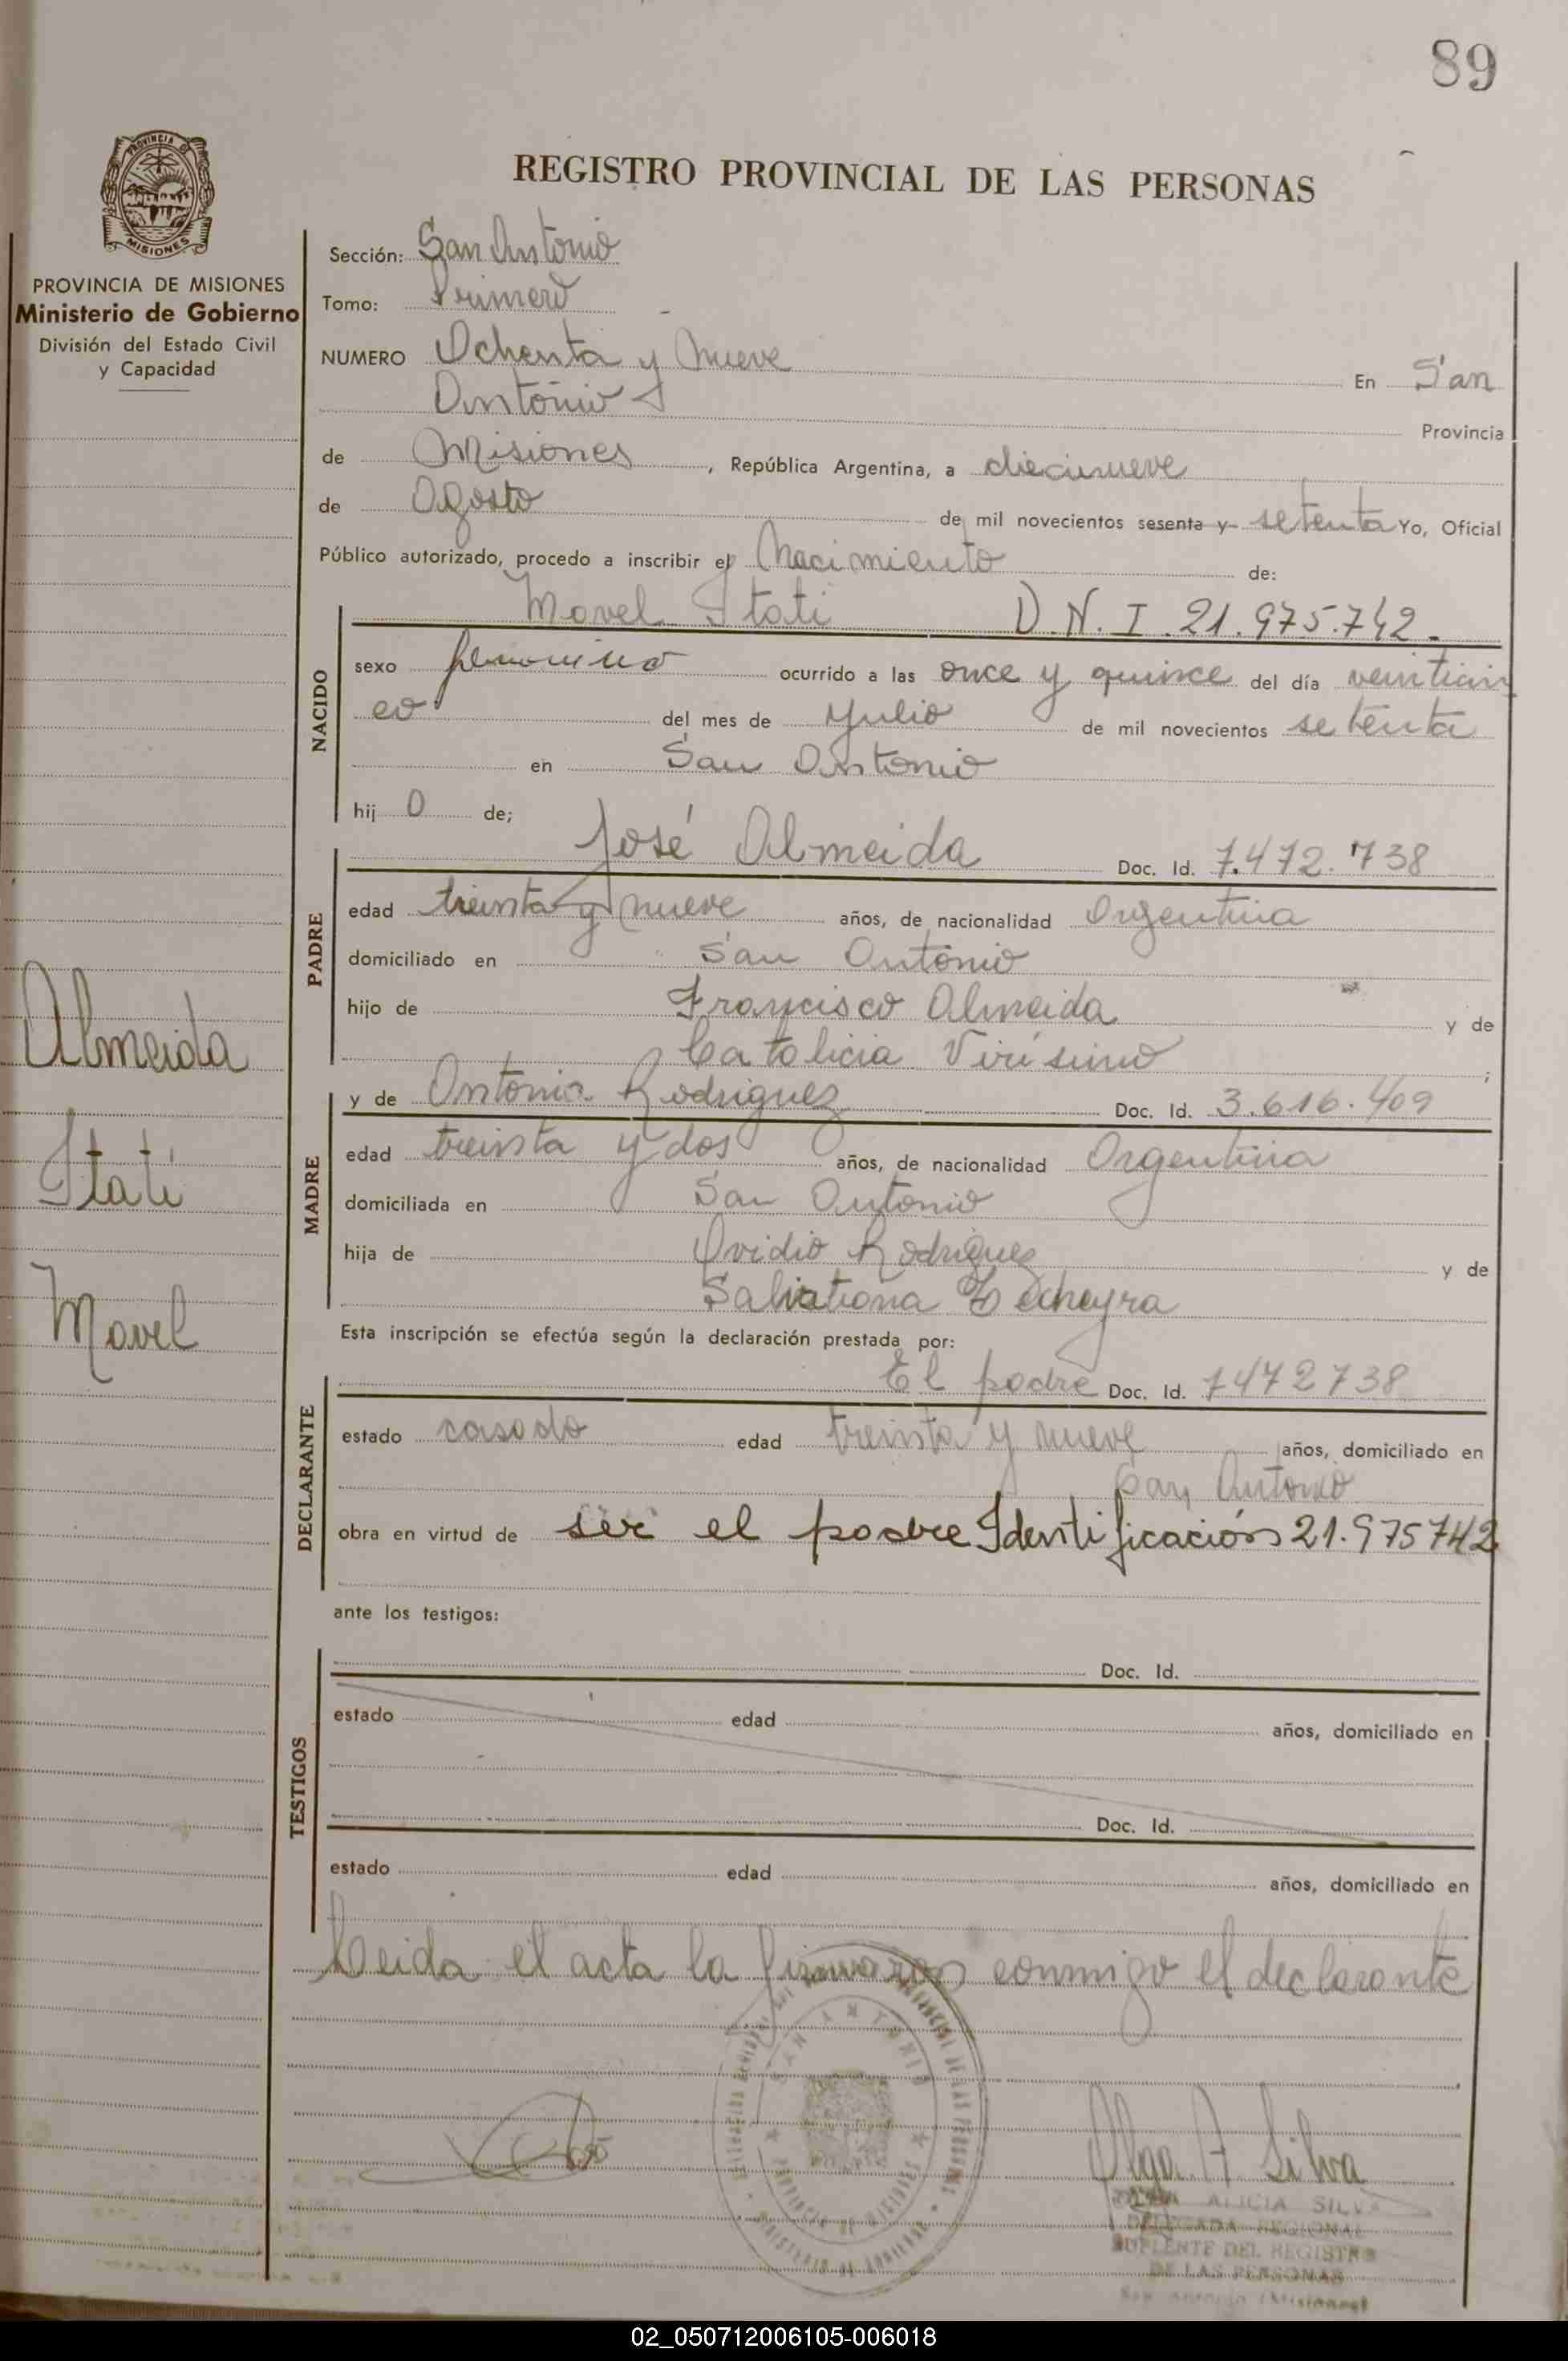 89
REGISTRO PROVINCIAL DE LAS PERSONAS
PROVINCIA DE
MISIONES
PROVINCIA DE MISIONES
Ministerio de Gobierno
División del Estado Civil
y Capacidad
Sección: San Antonio
Tomo: Primero
NUMERO Ochenta y Nueve En San
Antonio
Provincia
de Misiones, República Argentina, a diecinueve
de Agosto de mil novecientos sesenta y setenta Yo, Oficial
Público autorizado, procedo a inscribir el Nacimiento de:
Mavel Itati D.N.I 21.975.742.
NACIDO
sexo femenino ocurrido a las once y quince del día veinticin
co del mes de Julio de mil novecientos setenta
en San Antonio
hij O de;
José Almeida Doc. Id. 7.472.738
PADRE
edad treinta y nueve años, de nacionalidad Argentina
domiciliado en San Antonio
hijo de Francisco Almeida y de
Catalicia ;
y de Antonia Rodriguez Doc. Id. 3.616.409
MADRE
edad treinta y dos años, de nacionalidad Argentina
domiciliada en San Antonio
hija de Ovidio Rodriguez y de
Esta inscripción se efectúa según la declaración prestada por:
El padre Doc. Id. 7472738
DECLARANTE
estado casado edad treinta y nueve años, domiciliado en
San Antonio
obra en virtud de ser el padre Identificación 21.975742
ante los testigos:
TESTIGOS
Doc. Id.
estado edad años, domiciliado en
Doc. Id.
estado edad años, domiciliado en
Leida el acta la firmaron conmigo el declarante
Almeida
Itatí
Mavel
Olga A Silva
OLGA ALICIA SILVA
DELEGADA REGIONAL
SUPLENTE DEL REGISTRO
DE LAS PERSONAS
San Antonio (Misiones)
02_050712006105-006018